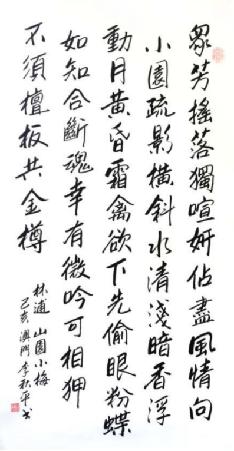 眾芳搖落獨喧妍佔盡風情向
小園疏影橫斜水清淺暗香浮
動月黃昏霜禽欲下先偷眼粉蝶
如知合斷魂幸有微吟可相狎
不須檀板共金樽
林逋 山園小梅
己亥 澳門 李秋平书